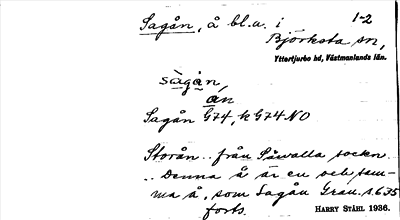 Sagån, å bl.a. i 1-2
Björksta sn,
Yttertjurbo hd, Västmanlands län.
sàgån,
ån
Sagån G74, k G74 NO
Storån .. från Såwalla socken.
.. Denna å är en och sam-
ma å, som Sagån Grau. 1635
forts. HARRY STÅHL 1936.